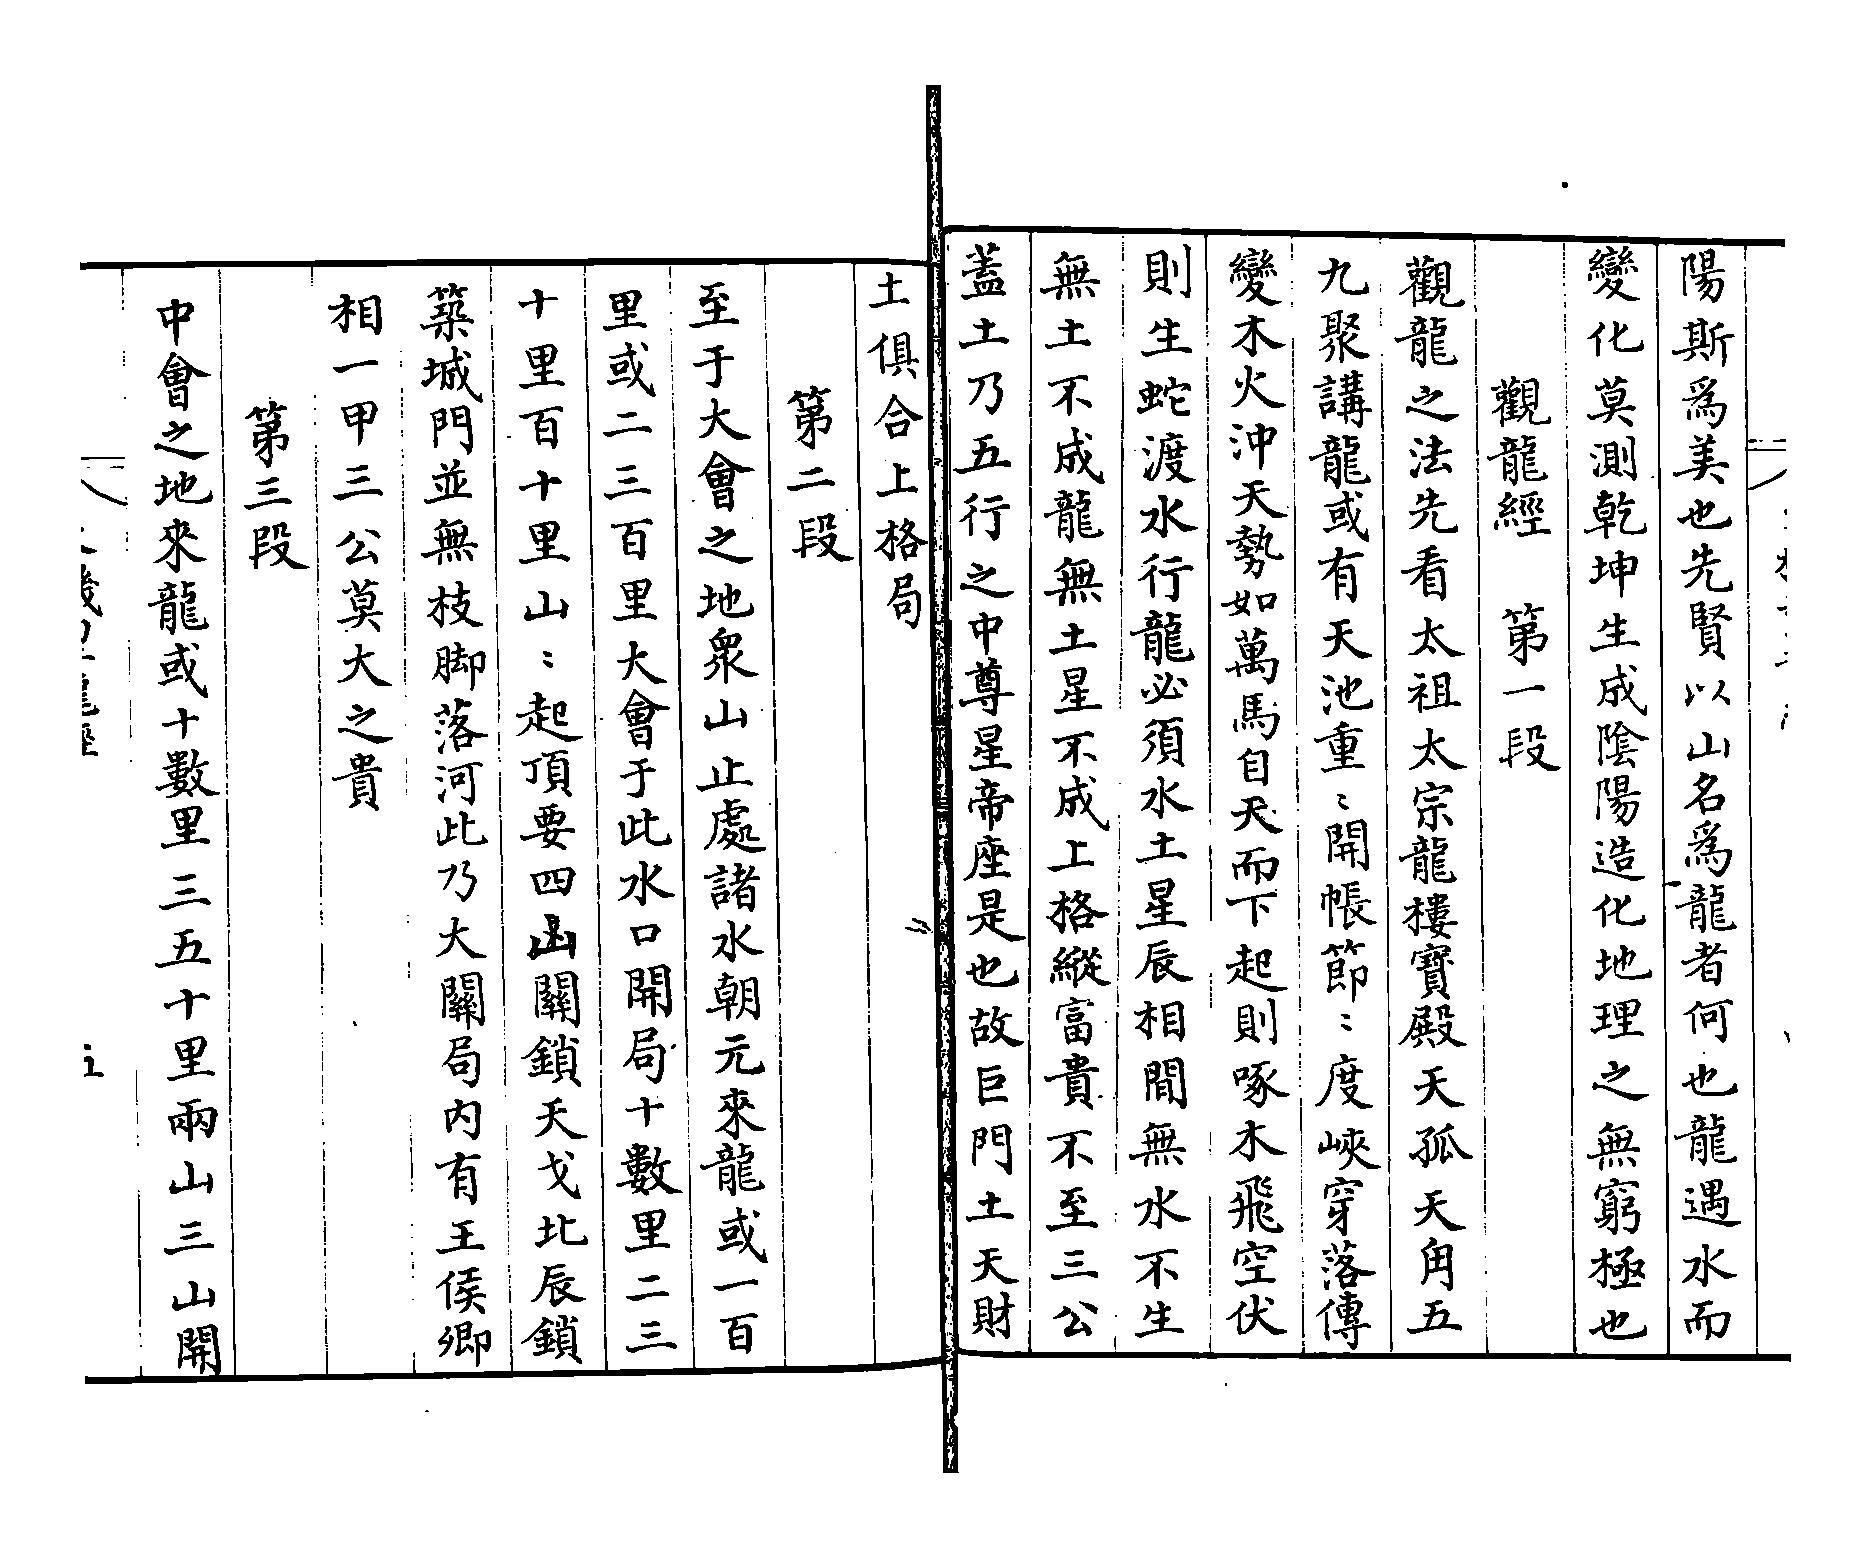 陽斯爲美也先賢以山名爲龍者何也龍遇水而
變化莫測乾坤生成陰陽造化地理之無窮極也
觀龍經　第一段
觀龍之法先看太祖太宗龍樓寶殿天孤天角五
九聚講龍或有天池重〻開帳節〻度峽穿落傳
變木火沖天勢如萬馬自天而下起則啄木飛空伏
則生蛇渡水行龍必須水土星辰相間無水不生
無土不成龍無土星不成上格縱富貴不至三公
蓋土乃五行之中尊星帝座是也故巨門土天財
土俱合上格局
第二段
至于大會之地衆山止處諸水朝元來龍或一百
里或二三百里大會于此水口開局十數里二三
十里百十里山〻起頂要四凷關鎖天戈北辰鎖
築城門並無枝脚落河此乃大關局内有王侯卿
相一甲三公莫大之貴
第三段
中會之地來龍或十數里三五十里兩山三山開